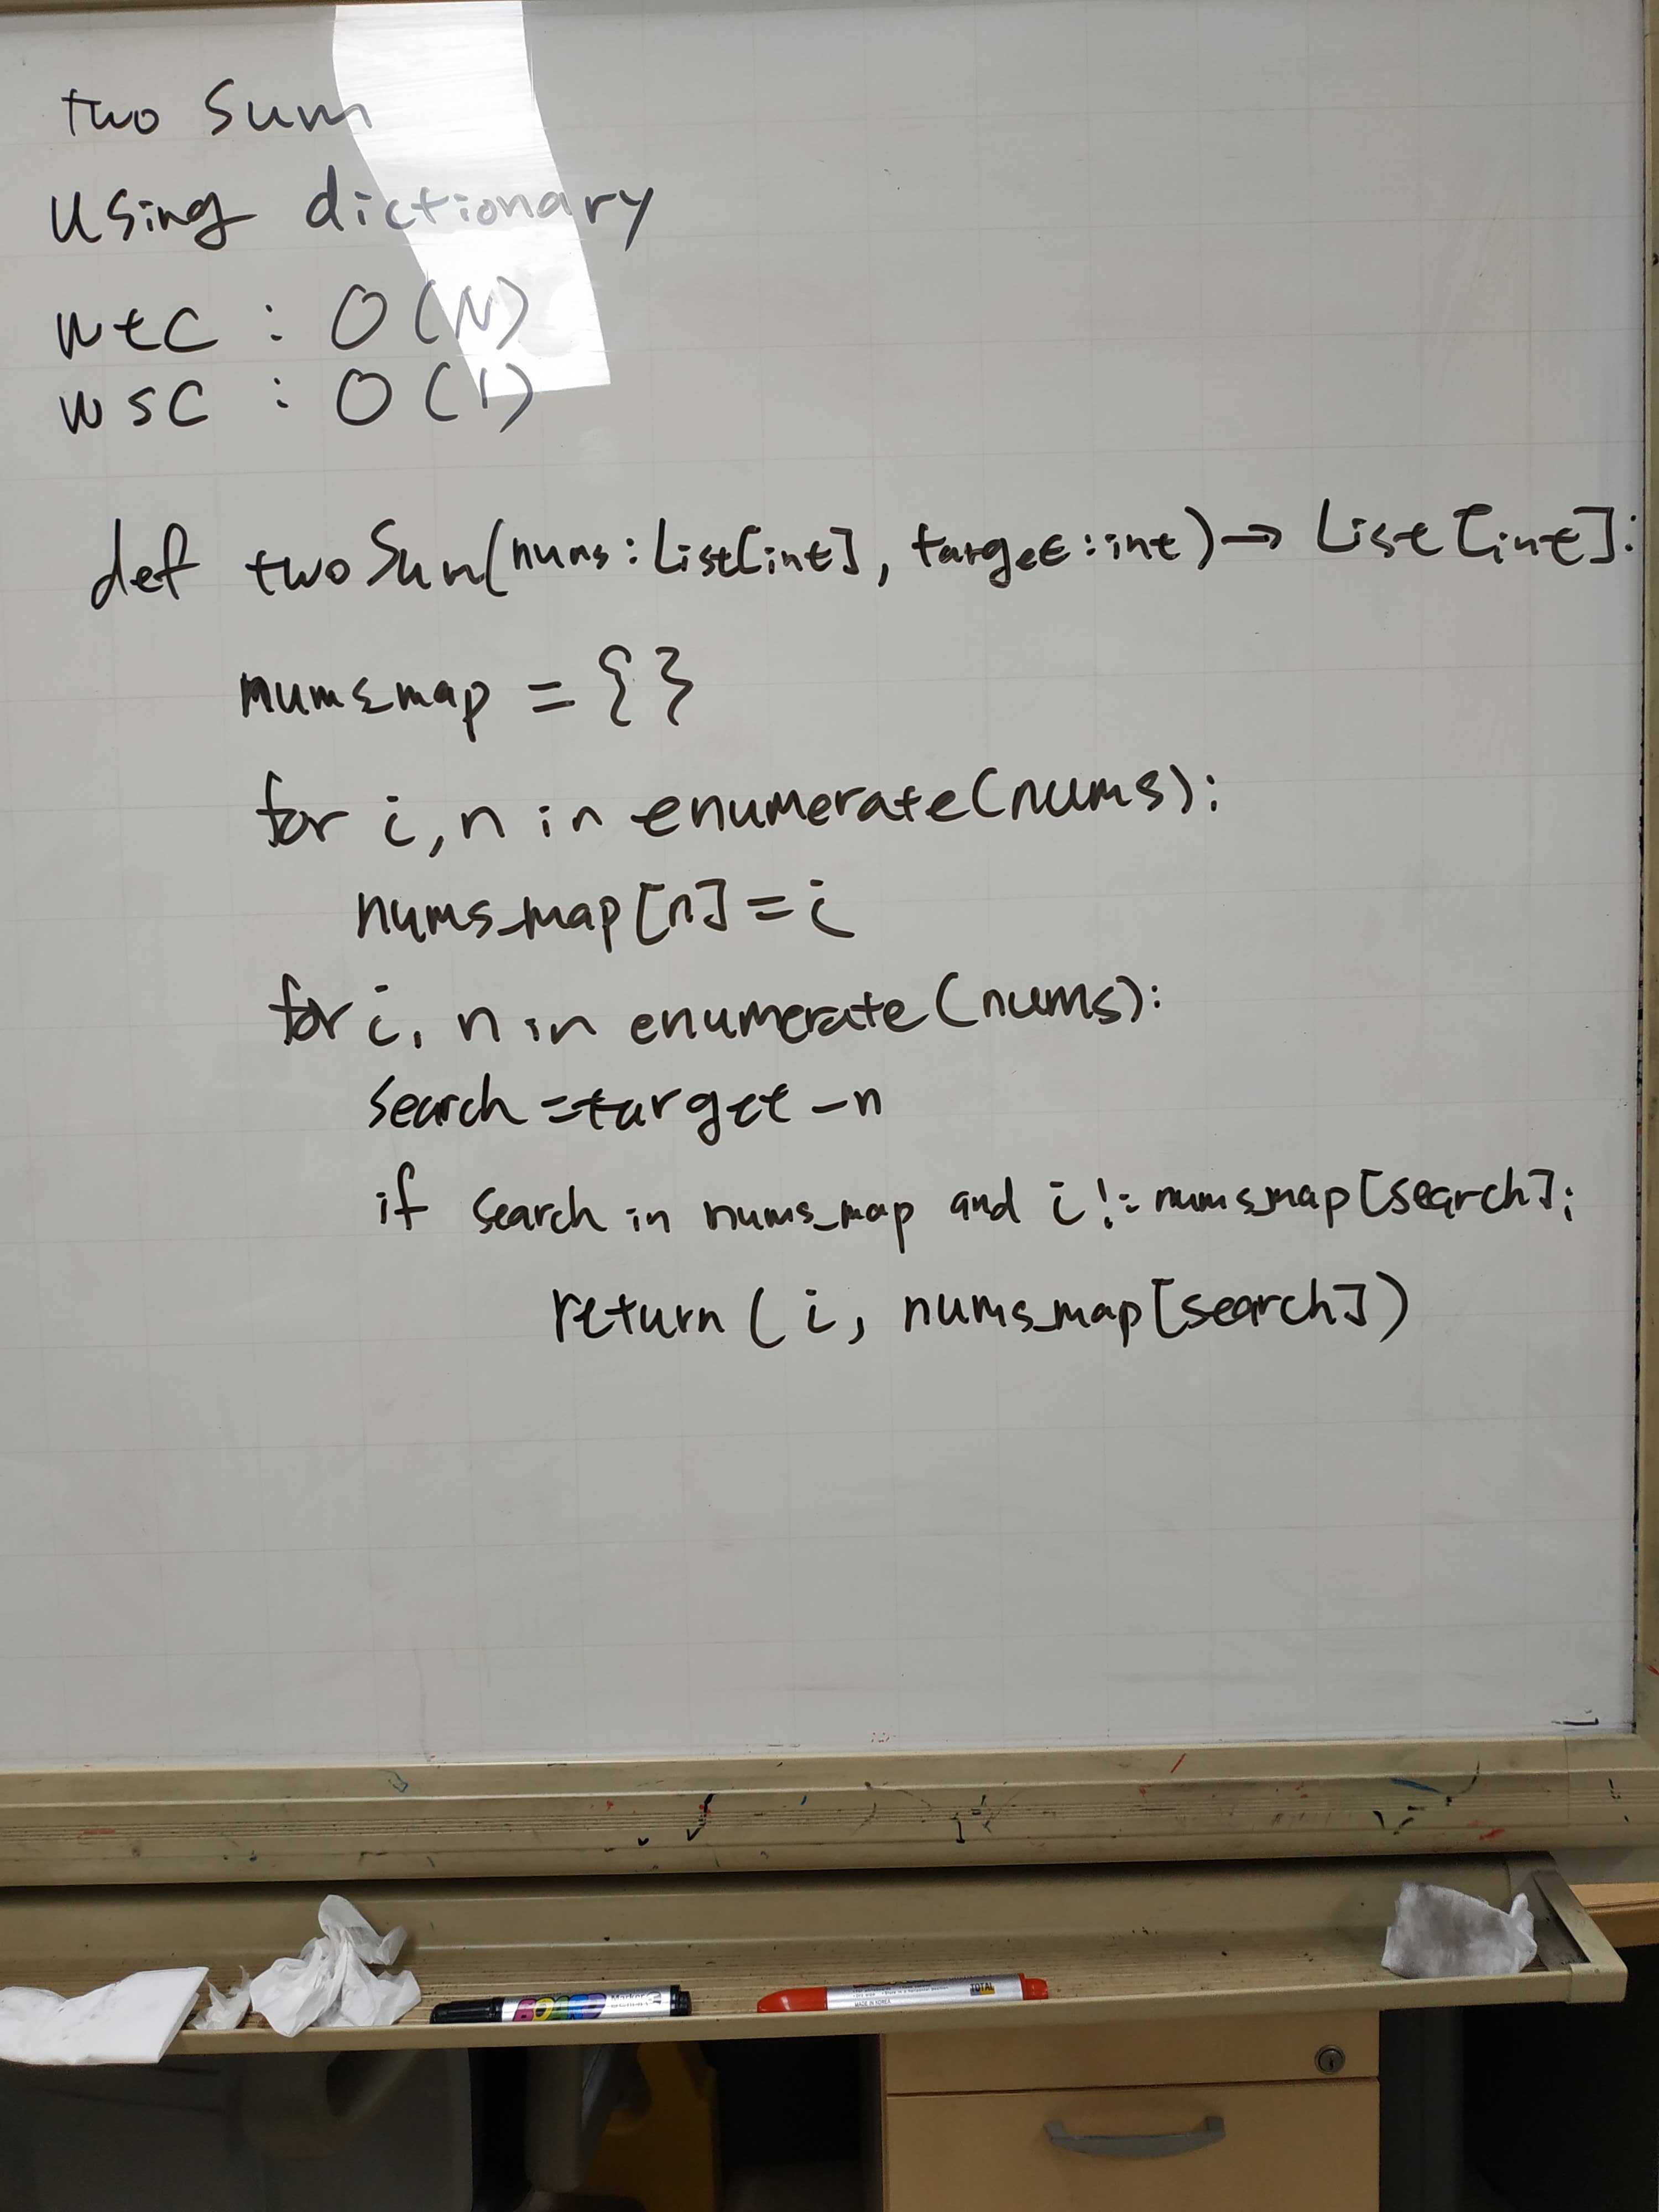 two Sum
Using dictionary
wtc : O(N)
wsc : O(1)
def twoSum(nums: List[int], target: int) → List[int]:
nums_map = { }
for i, n in enumerate(nums):
nums_map[n] = i
for i, n in enumerate(nums):
search = target - n
if search in nums_map and i != nums_map[search]:
return (i, nums_map[search])
BOARD Marker
TOTAL
MADE IN KOREA